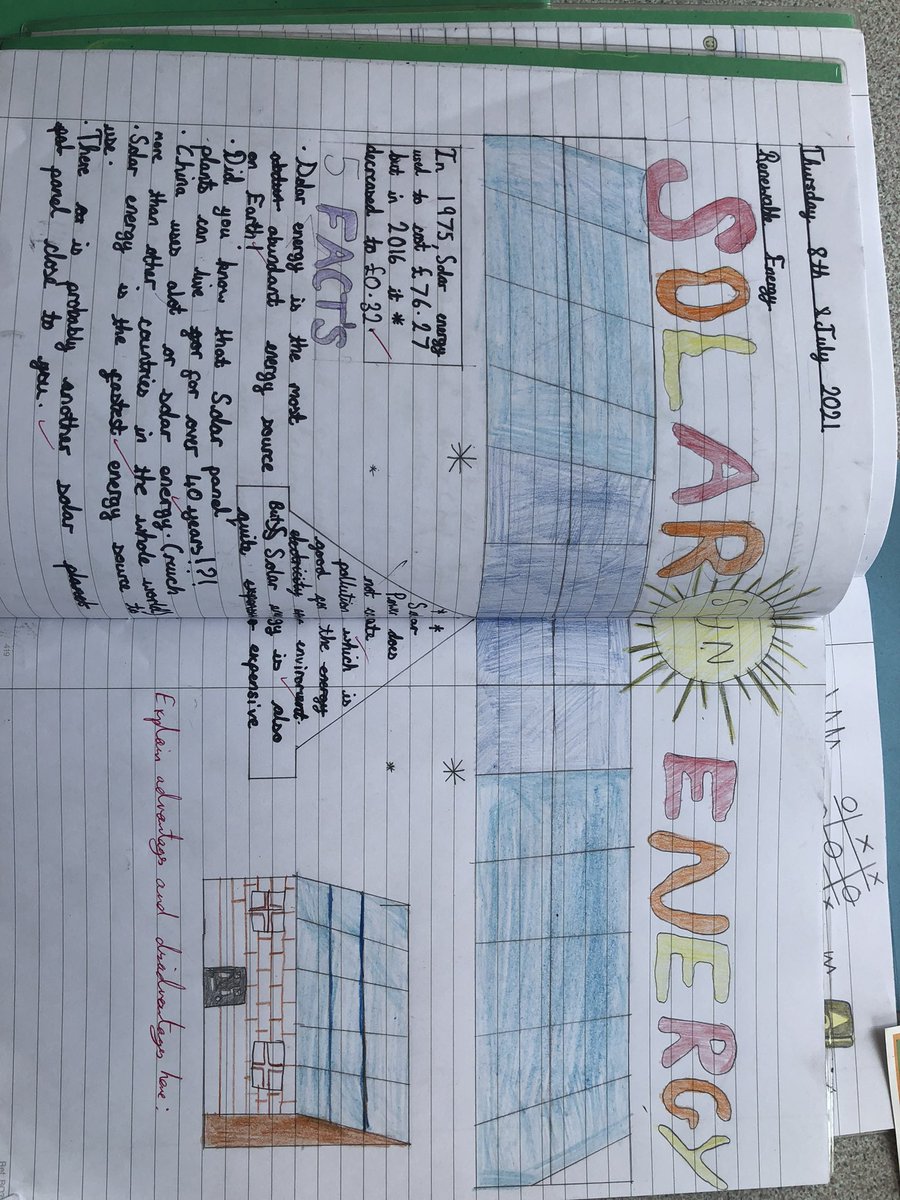 Thursday 8th July 2021
Renewable Energy
SOLAR ENERGY
SUN
In 1975 Solar energy
used to cost £76.27
but in 2016 it *
decreased to £0.32
5 FACT'S
. Dolar energy is the most
abundant energy source
on Earth!
. Did you know that Solar panel
plants can live for over 40 years!?!
. China uses alot or solar energy. (much
more than other countries in the whole world)
. Solar energy is the fastest energy source to
use.
. There is probably another solar
panel close to you.
*
Solar
does
not create
pollution which is
good for the energy
electricity enviroment.
But Solar is also
quite expensive
Explain advantages and disadvantages here:
419